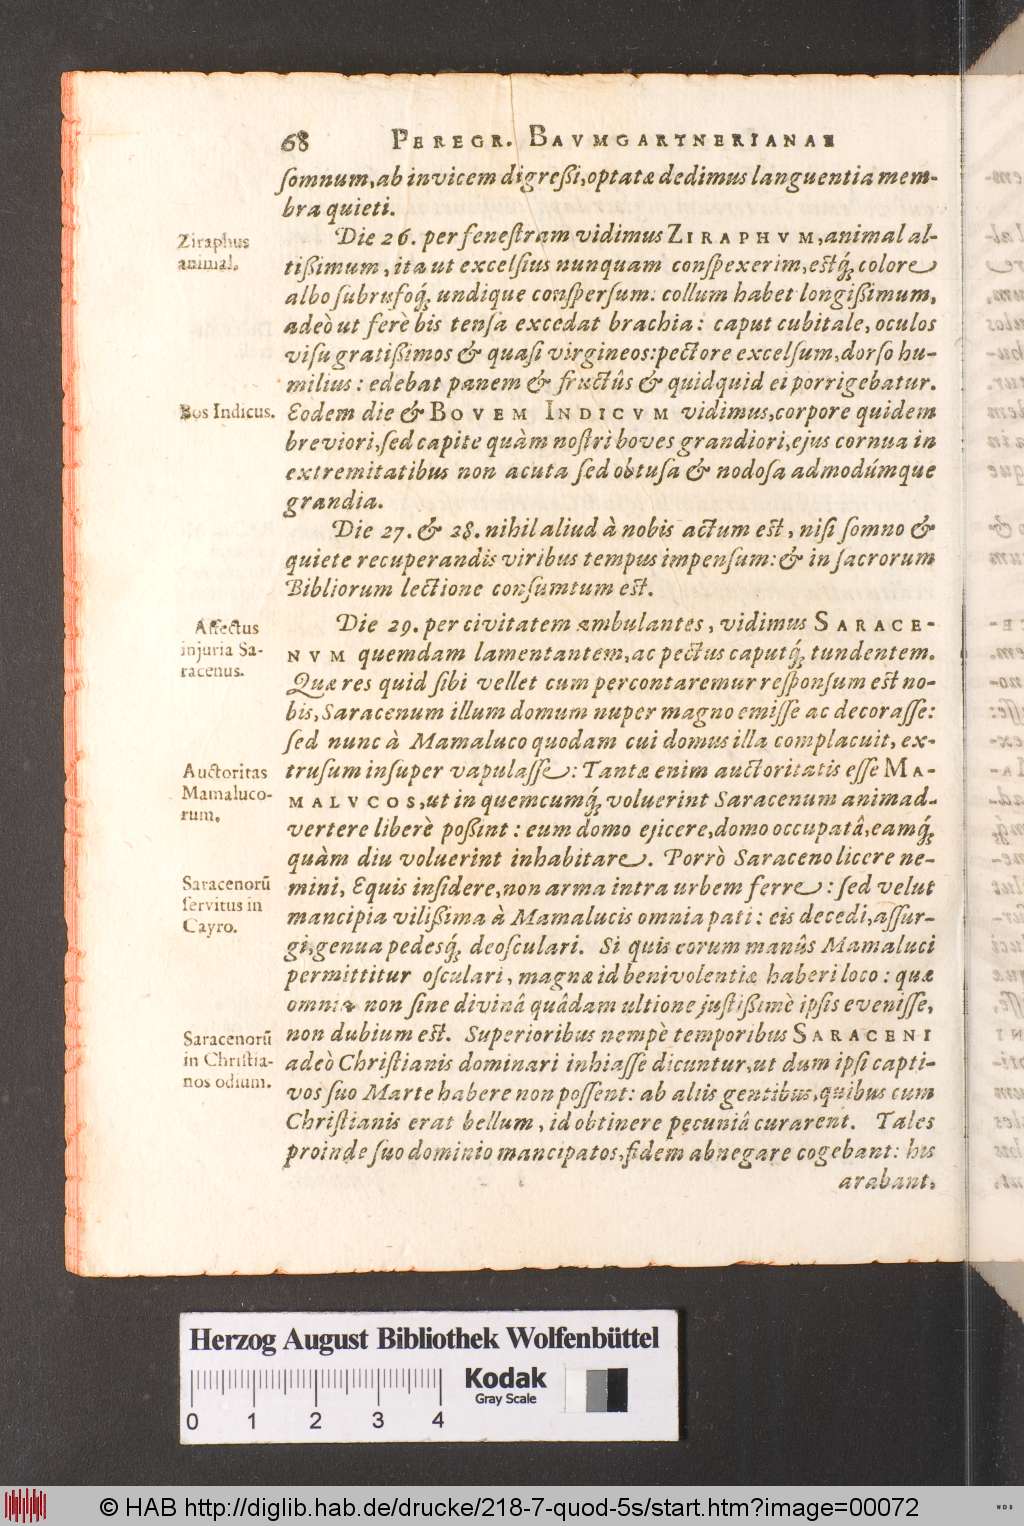 68 PEREGR. BAVMGARTNERIANAE
ſomnum, ab invicem digreßi, optatæ dedimus languentia mem-
bra quieti.
Ziraphus
animal.
Die 26. per feneſtram vidimus ZIRAPHVM, animal al-
tißimum, ita ut excelſius nunquam conſpexerim, eſtq́; colore
albo ſubrufoq́; undique conſperſum: collum habet longißimum,
adeò ut ferè bis tenſa excedat brachia: caput cubitale, oculos
viſu gratißimos & quaſi virgineos: pectore excelſum, dorſo hu-
milius: edebat panem & fructûs & quidquid ei porrigebatur.
Bos Indicus.
Eodem die & BOVEM INDICVM vidimus, corpore quidem
breviori, ſed capite quàm noſtri boves grandiori, ejus cornua in
extremitatibus non acuta ſed obtuſa & nodoſa admodúmque
grandia.
Die 27. & 28. nihil aliud à nobis actum eſt, niſi ſomno &
quiete recuperandis viribus tempus impenſum: & in ſacrorum
Bibliorum lectione conſumtum eſt.
Affectus
injuria Sa-
racenus.
Die 29. per civitatem ambulantes, vidimus SARACE-
NVM quemdam lamentantem, ac pectus caputq́; tundentem.
Quæ res quid ſibi vellet cum percontaremur reſponſum eſt no-
bis, Saracenum illum domum nuper magno emiſſe ac decoraſſe:
ſed nunc à Mamaluco quodam cui domus illa complacuit, ex-
Auctoritas
Mamaluco-
rum.
truſum inſuper vapulaſſe: Tantæ enim auctoritatis eſſe MA-
MALVCOS, ut in quemcumq́; voluerint Saracenum animad-
vertere liberè poßint: eum domo ejicere, domo occupatâ, eamq́;
quàm diu voluerint inhabitare. Porrò Saraceno licere ne-
Saracenorū
ſervitus in
Cayro.
mini, Equis inſidere, non arma intra urbem ferre: ſed velut
mancipia vilißima à Mamalucis omnia pati: eis decedi, aſſur-
gi, genua pedesq́; deoſculari. Si quis eorum manûs Mamaluci
permittitur oſculari, magnæ id benivolentiæ haberi loco: quæ
omnia non ſine divinâ quâdam ultione juſtißimè ipſis eveniſſe,
Saracenorū
in Chriſtia-
nos odium.
non dubium eſt. Superioribus nempè temporibus SARACENI
adeò Chriſtianis dominari inhiaſſe dicuntur, ut dum ipſi capti-
vos ſuo Marte habere non poſſent: ab aliis gentibus, quibus cum
Chriſtianis erat bellum, id obtinere pecuniâ curarent. Tales
proinde ſuo dominio mancipatos, fidem abnegare cogebant: his
arabant,
Herzog August Bibliothek Wolfenbüttel
Kodak
Gray Scale
0 1 2 3 4
© HAB http://diglib.hab.de/drucke/218-7-quod-5s/start.htm?image=00072